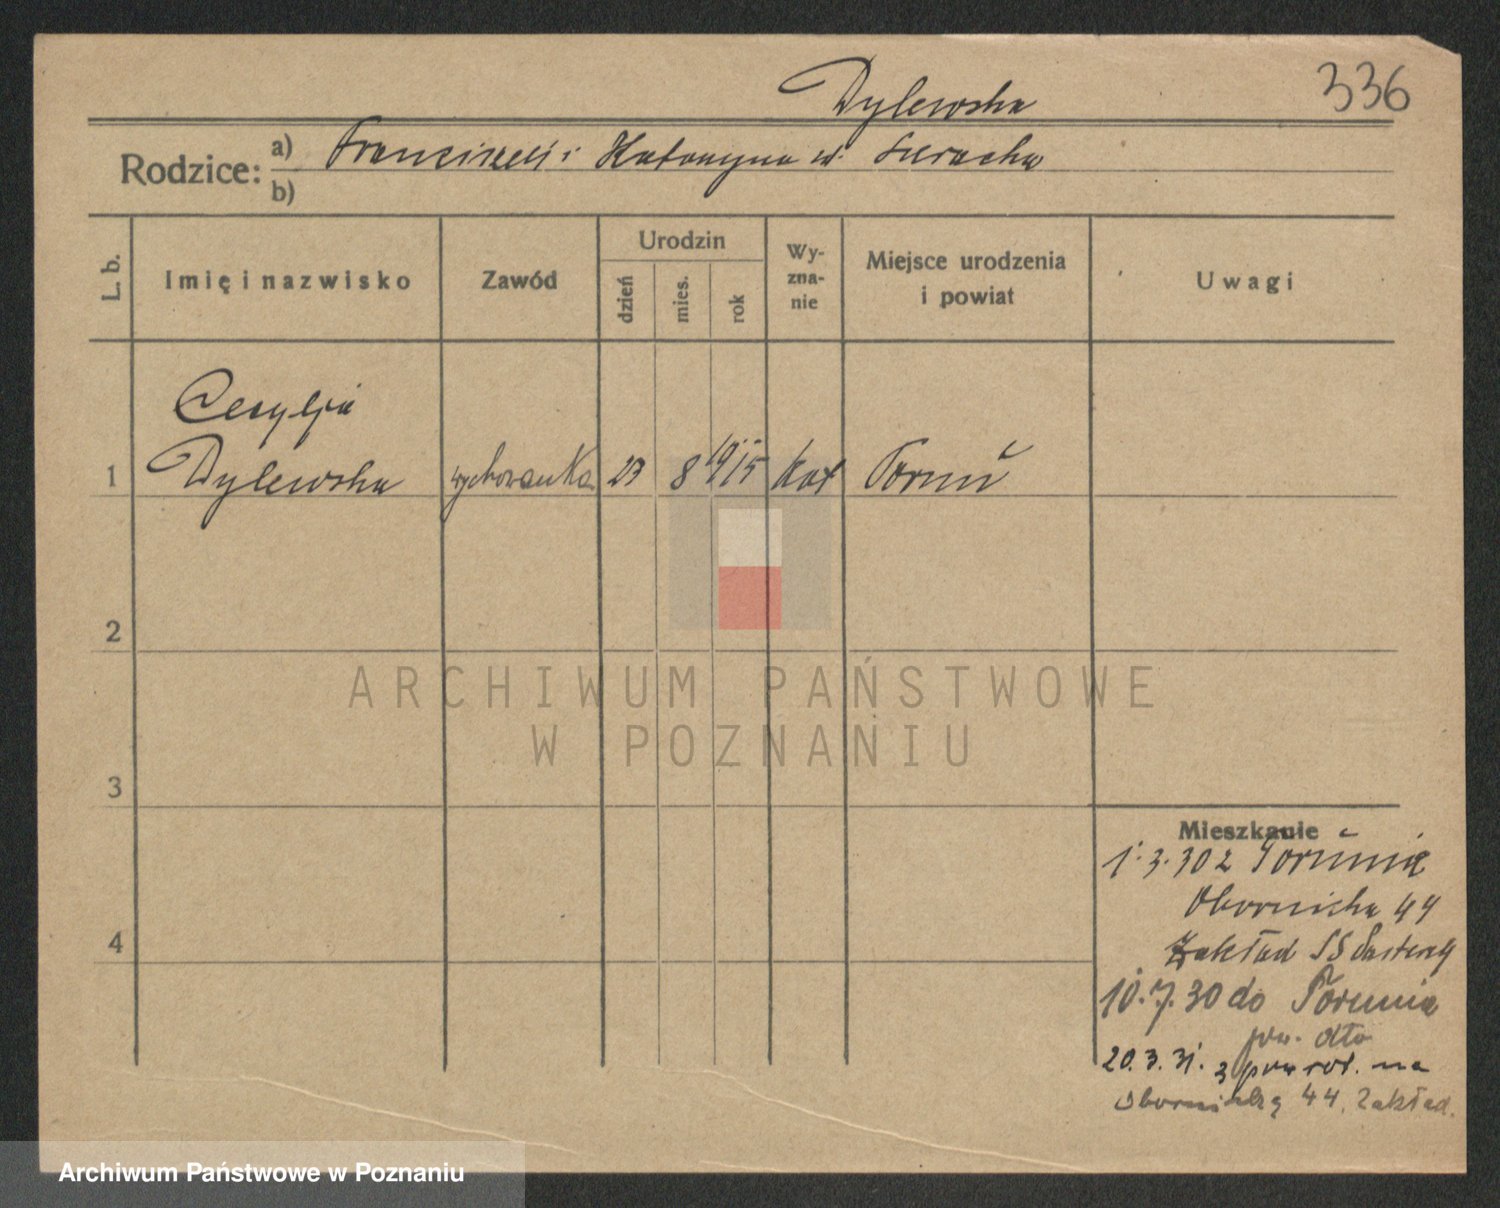 336
Dylewska
Rodzice: a) Franciszek i Katarzyna
b)
L. b.
Imię i nazwisko
Zawód
Urodzin
dzień
mies.
rok
Wy-
zna-
nie
Miejsce urodzenia
i powiat
Uwagi
Cecylja
1 Dylewska wychowanka 23 8 1915 kat Toruń
2
3
4
Mieszkanie
1.3.30 z Torunia
Obornicka 44
Zakład SS
10.7.30 do Torunia
pow. dto
20.3.31. z powrot. na
Obornicką 44, Zakład.
ARCHIWUM PAŃSTWOWE
W POZNANIU
Archiwum Państwowe w Poznaniu